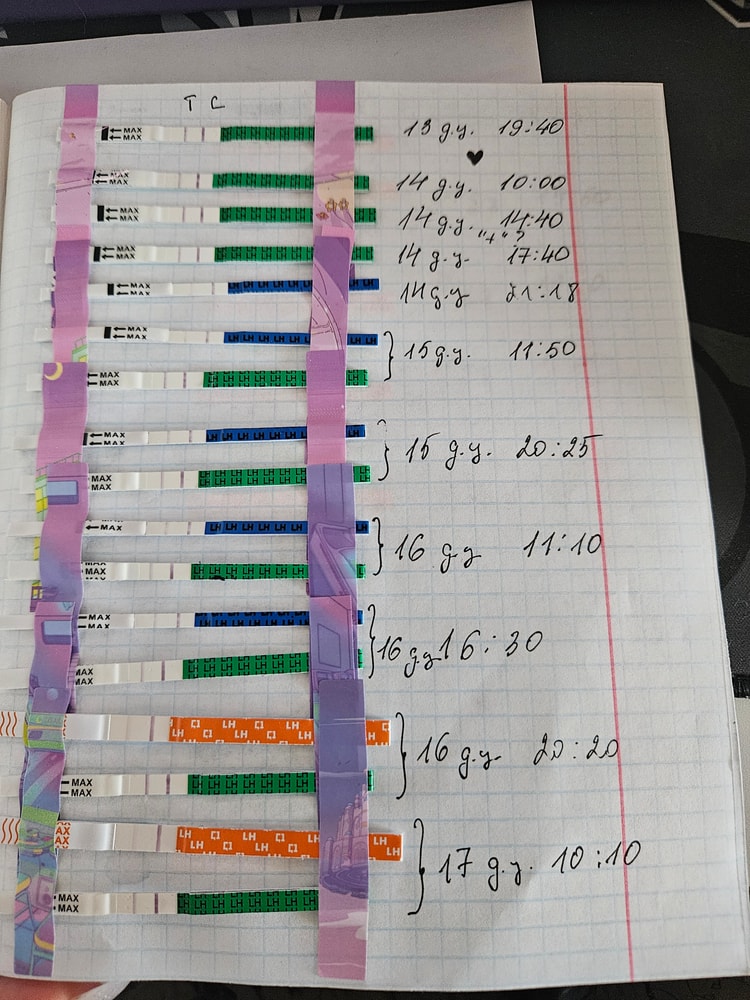 T C
MAX MAX 13 д.ц. 19:40
MAX MAX 14 д.ц. 10:00
MAX MAX 14 д.ц. 14:40
"+"?
MAX MAX 14 д.ц. 17:40
MAX MAX LH LH LH LH LH 14 д.ц 21:18
MAX MAX LH LH LH LH LH
MAX MAX LH LH LH LH LH LH 15 д.ц. 11:50
MAX LH LH LH LH LH LH LH
MAX MAX LH LH LH LH LH LH 15 д.ц. 20:25
MAX LH LH LH LH LH LH
MAX MAX LH LH LH LH LH LH 16 д.ц 11:10
MAX MAX LH LH LH LH LH LH
MAX MAX LH LH LH LH LH LH 16 д.ц 16:30
LH LH LH LH LH LH
MAX MAX LH LH LH LH LH LH 16 д.ц. 20:20
LH LH LH LH LH LH
MAX MAX LH LH LH LH LH LH 17 д.ц. 10:10